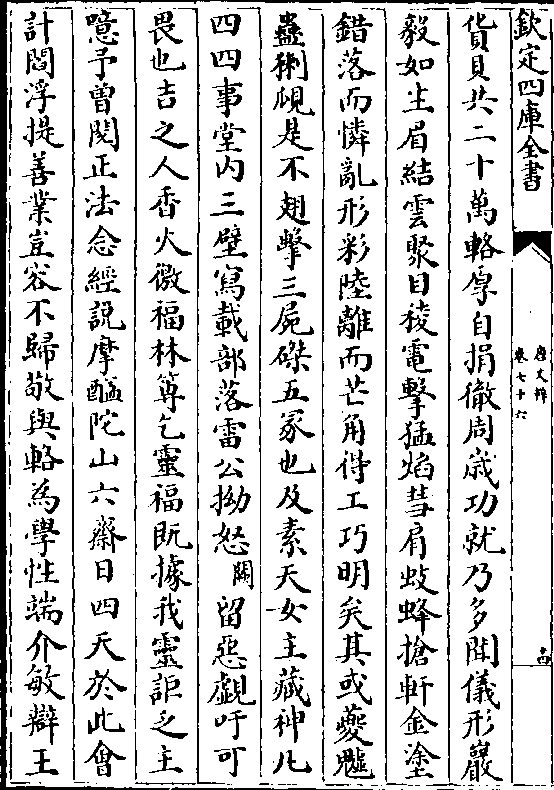 欽定四庫全書
唐文粹
卷七十六
貨貝共二十萬輅厚自捐徹周歲功就乃多聞儀形巖
毅如生眉結雲聚目稜電擊猛焰彗肩蛟蜂搶軒金塗
錯落而憐亂形彩陸離而芒角得工巧明矣其或夔魖
蠱猘覘是不翅擊三屍磔五冢也及素天女主藏神凡
四四事堂内三壁寫載部落雷公拗怒闕留惡覷吁可
畏也吉之人香火徼福林箄乞靈福既據我靈詎乏主
噫予曾閱正法念經說摩醯陀山六齋日四天於此會
計閻浮提善業豈容不歸敬與輅為學性端介敏辯王